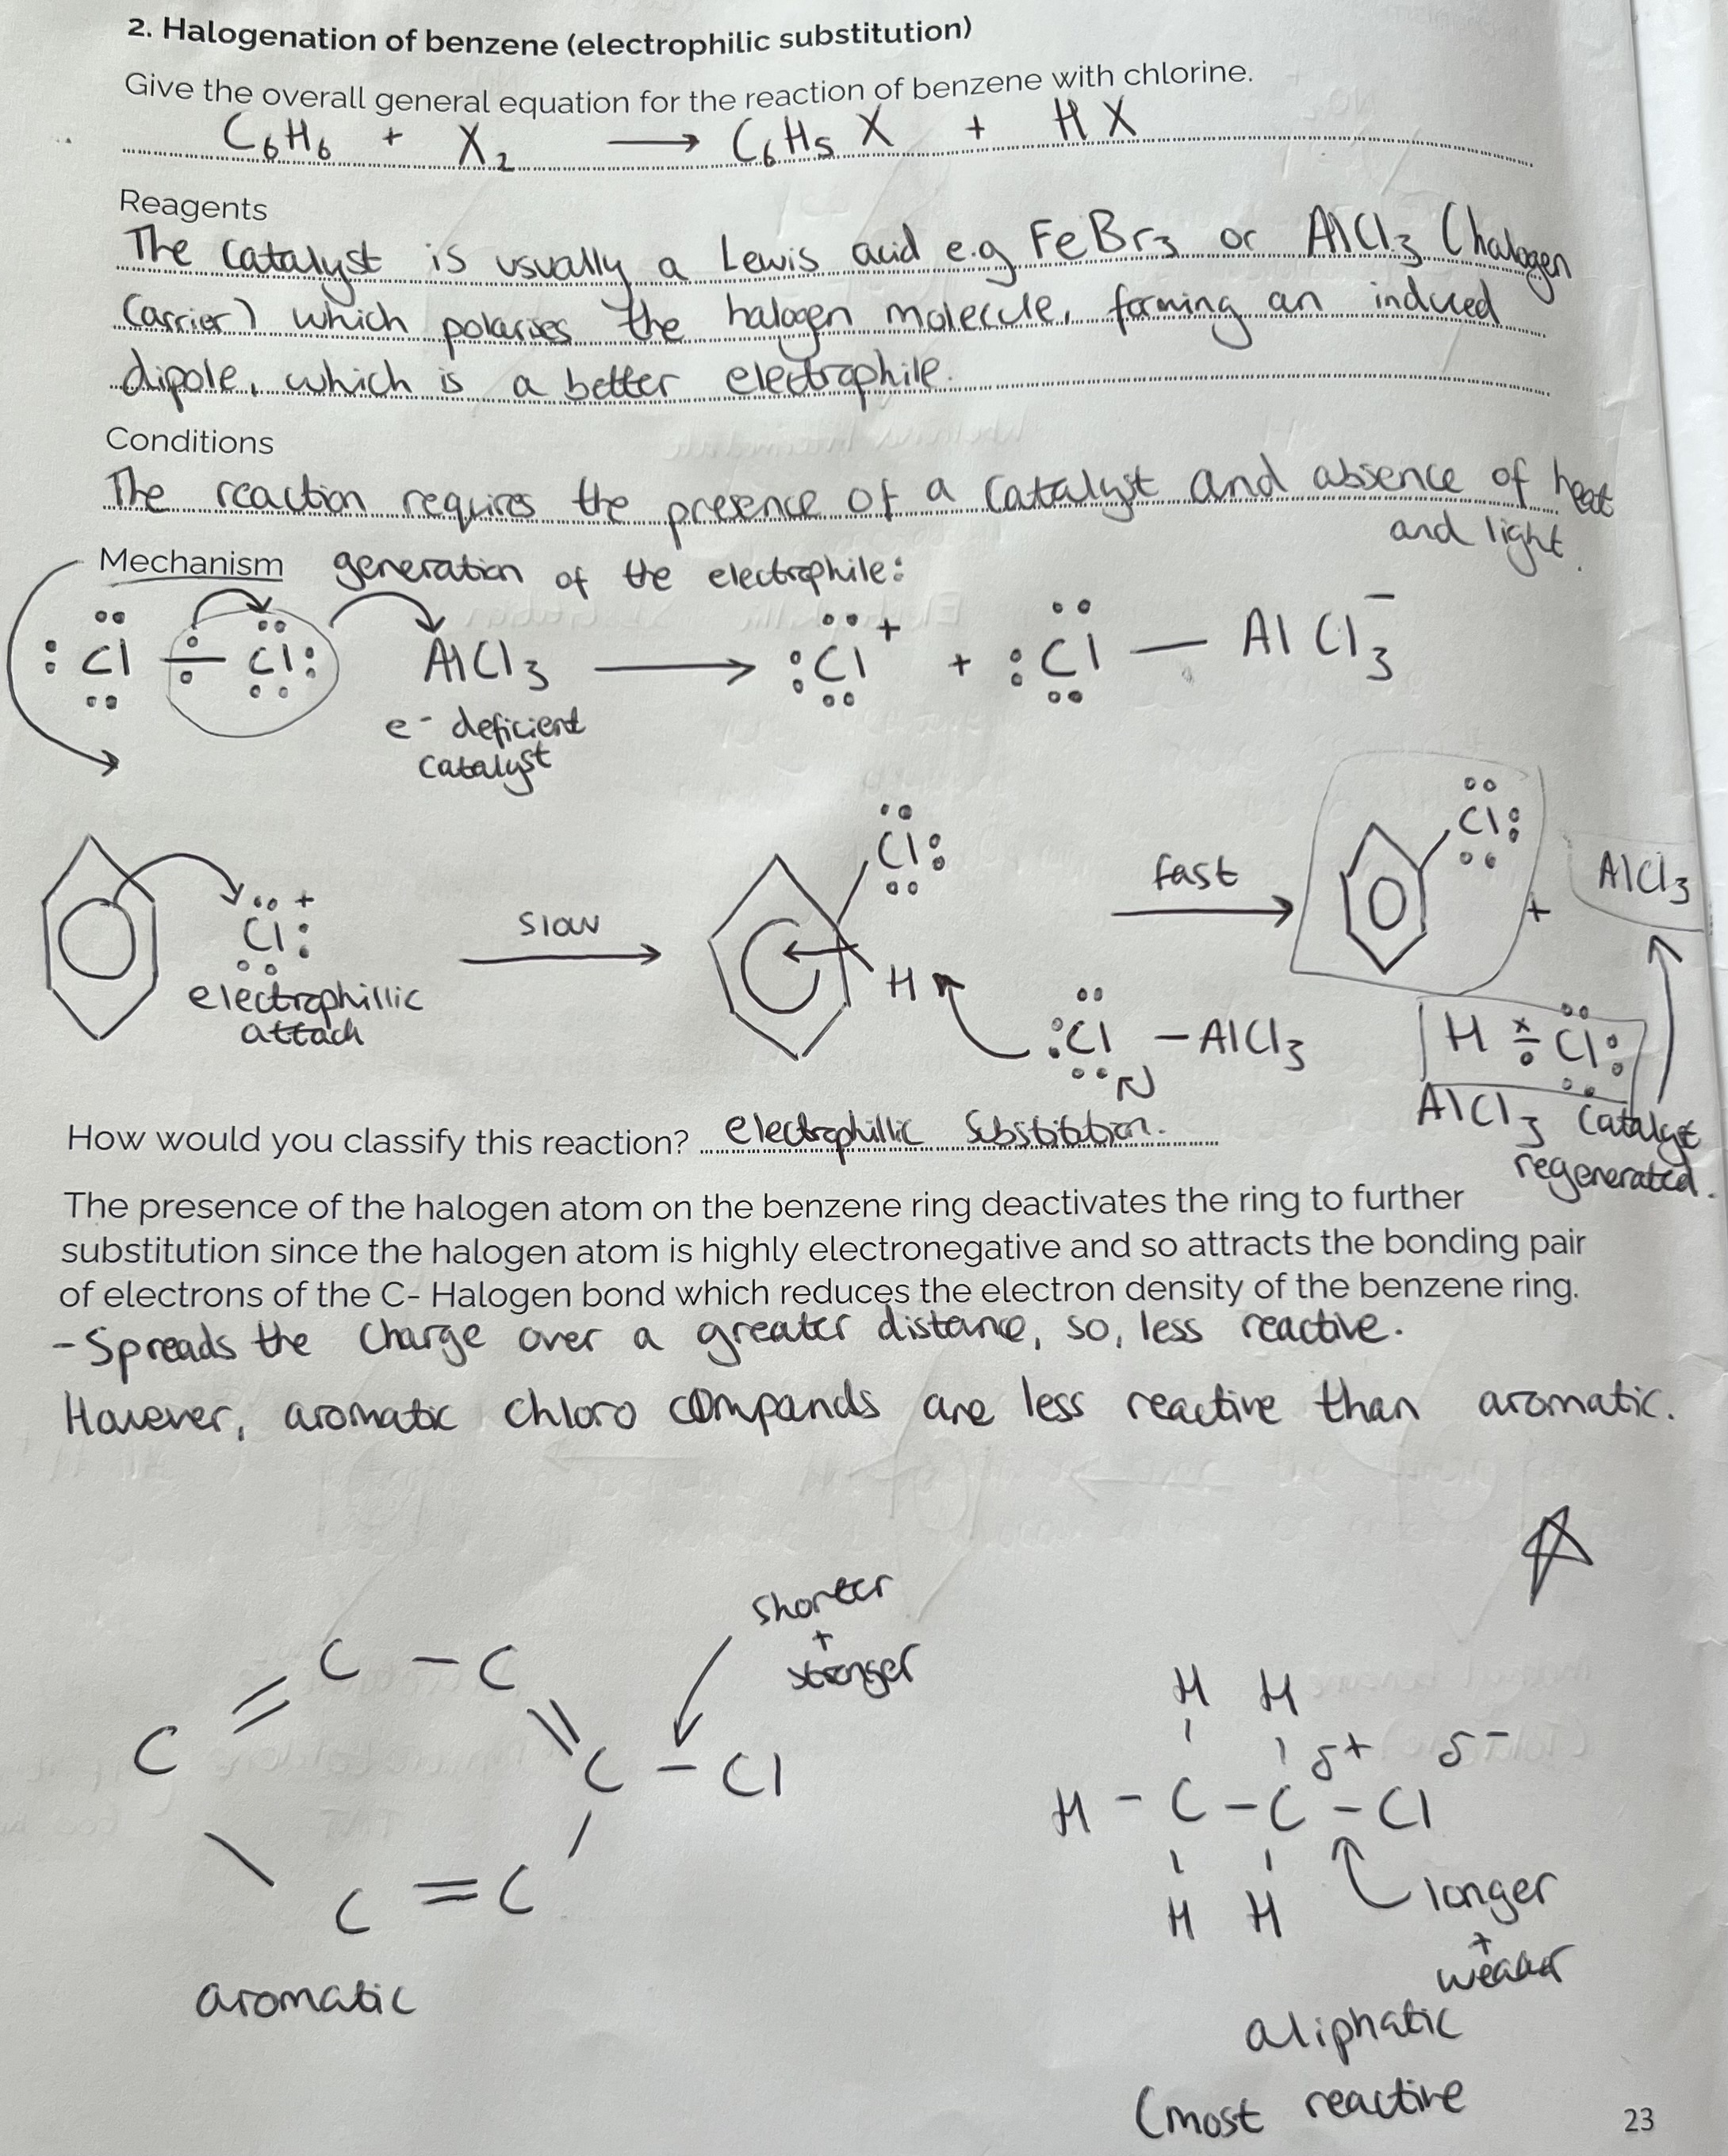 2. Halogenation of benzene (electrophilic substitution)
Give the overall general equation for the reaction of benzene with chlorine.
C6H6 + X2 → C6H5X + HX
Reagents
The catalyst is usually a Lewis acid e.g FeBr3 or AlCl3 (halogen
carrier) which polarises the halogen molecule, forming an induced
dipole, which is a better electrophile.
Conditions
The reaction requires the presence of a catalyst and absence of heat
and light.
Mechanism generation of the electrophile:
Cl – Cl AlCl3 → Cl+ + Cl – AlCl3−
e- deficient
catalyst
Cl
Cl
fast
AlCl3
Cl+
slow
+
electrophillic
attach
H
Cl – AlCl3
H Cl
AlCl3 catalyst
regenerated.
How would you classify this reaction? electrophillic substitution.
The presence of the halogen atom on the benzene ring deactivates the ring to further
substitution since the halogen atom is highly electronegative and so attracts the bonding pair
of electrons of the C- Halogen bond which reduces the electron density of the benzene ring.
- Spreads the charge over a greater distance, so, less reactive.
However, aromatic chloro compands are less reactive than aromatic.
shorter
+
stronger
C – C
C
C – Cl
C = C
aromatic
H H
δ+ δ−
H – C – C – Cl
H H
longer
+
aliphatic
(most reactive
23